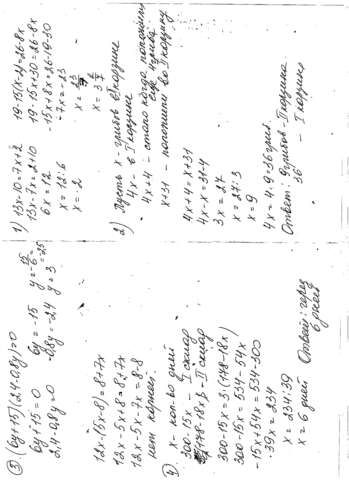 1) 13x-10=7x+2
13x-7x=2+10
6x=12
x=12:6
x=2
19-15(x-2)=26-8x
19-15x+30=26-8x
-15x+8x=26-19-30
-7x=-23
x=23/7
x=3 2/7
2) Пусть x-грибов в II корзине
4x- в I корзине
4x+4 - стало когда положили еще 4 гриба
x+31 - положили во II корзину
4x+4=x+31
4x-x=31-4
3x=27
x=27:3
x=9
4x=4·9=36 гриб.
Ответ: 9 грибов II корзина.
36 - I корзина
3). (6y+15)(2,4-0,8y)=0
6y+15=0 6y=-15
2,4-0,8y=0 -0,8y=-2,4
y=-15/6=-2,5
y=3
12x-(5x-8)=8+7x
12x-5x+8=8+7x
12x-5x-7x=8-8
нет корней.
4. x- кол-во дней
300-15x - I склад
178-18x - II склад
300-15x=3·(178-18x)
300-15x=534-54x
-15x+54x=534-300
39x=234
x=234:39
x=6 дней
Ответ: через 6 дней